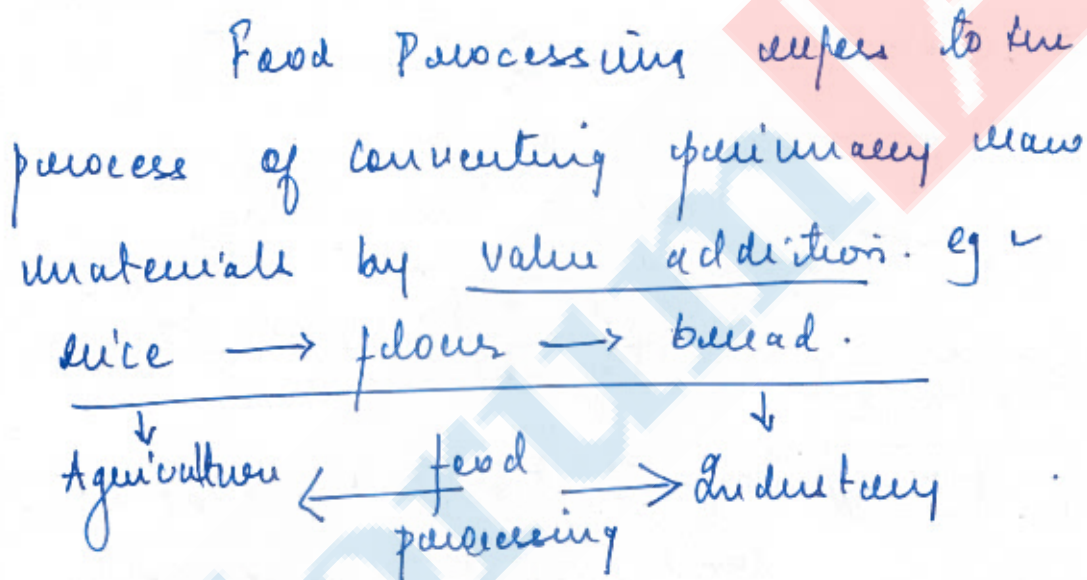 Food Processing refers to the
process of converting primary raw
materials by value addition. eg -
rice → flour → bread.
↓ ↓
Agriculture ← food → Industry
processing
rum